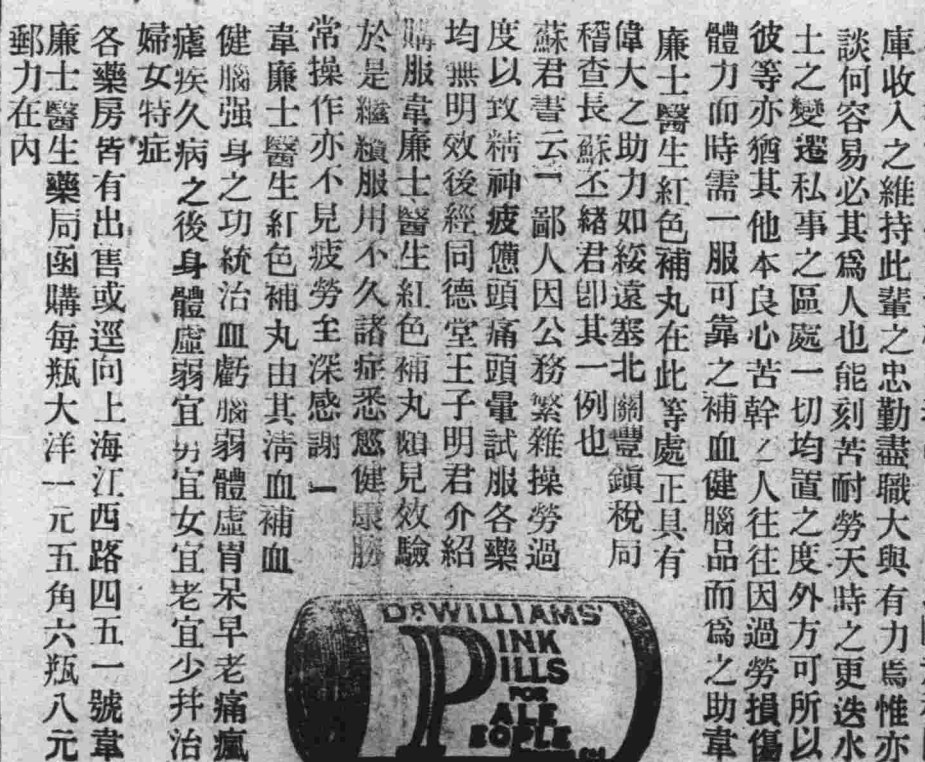 庫收入之維持此輩之忠勤盡職大與有力焉惟亦
談何容易必其爲人也能刻苦耐勞天時之更迭水
土之變遷私事之區處一切均置之度外方可所以
彼等亦猶其他本良心苦幹之人往往因過勞損傷
體力而時需一服可靠之補血健腦品而爲之助韋
廉士醫生紅色補丸在此等處正具有
偉大之助力如綏遠塞北關豐鎭稅局
稽查長蘇丕緒君卽其一例也
蘇君書云「鄙人因公務繁雜操勞過
度以致精神疲憊頭痛頭暈試服各藥
均無明效後經同德堂王子明君介紹
購服韋廉士醫生紅色補丸頗見效驗
於是繼續服用不久諸症悉愈健康勝
常操作亦不見疲勞至深感謝」
韋廉士醫生紅色補丸由其淸血補血
健腦强身之功統治血虧腦弱體虛胃呆早老痛瘋
瘧疾久病之後身體虛弱宜男宜女宜老宜少幷治
婦女特症
各藥房皆有出售或逕向上海江西路四五一號韋
廉士醫生藥局函購每瓶大洋一元五角六瓶八元
郵力在內
DR WILLIAMS'
PINK
PILLS
FOR
PALE
PEOPLE